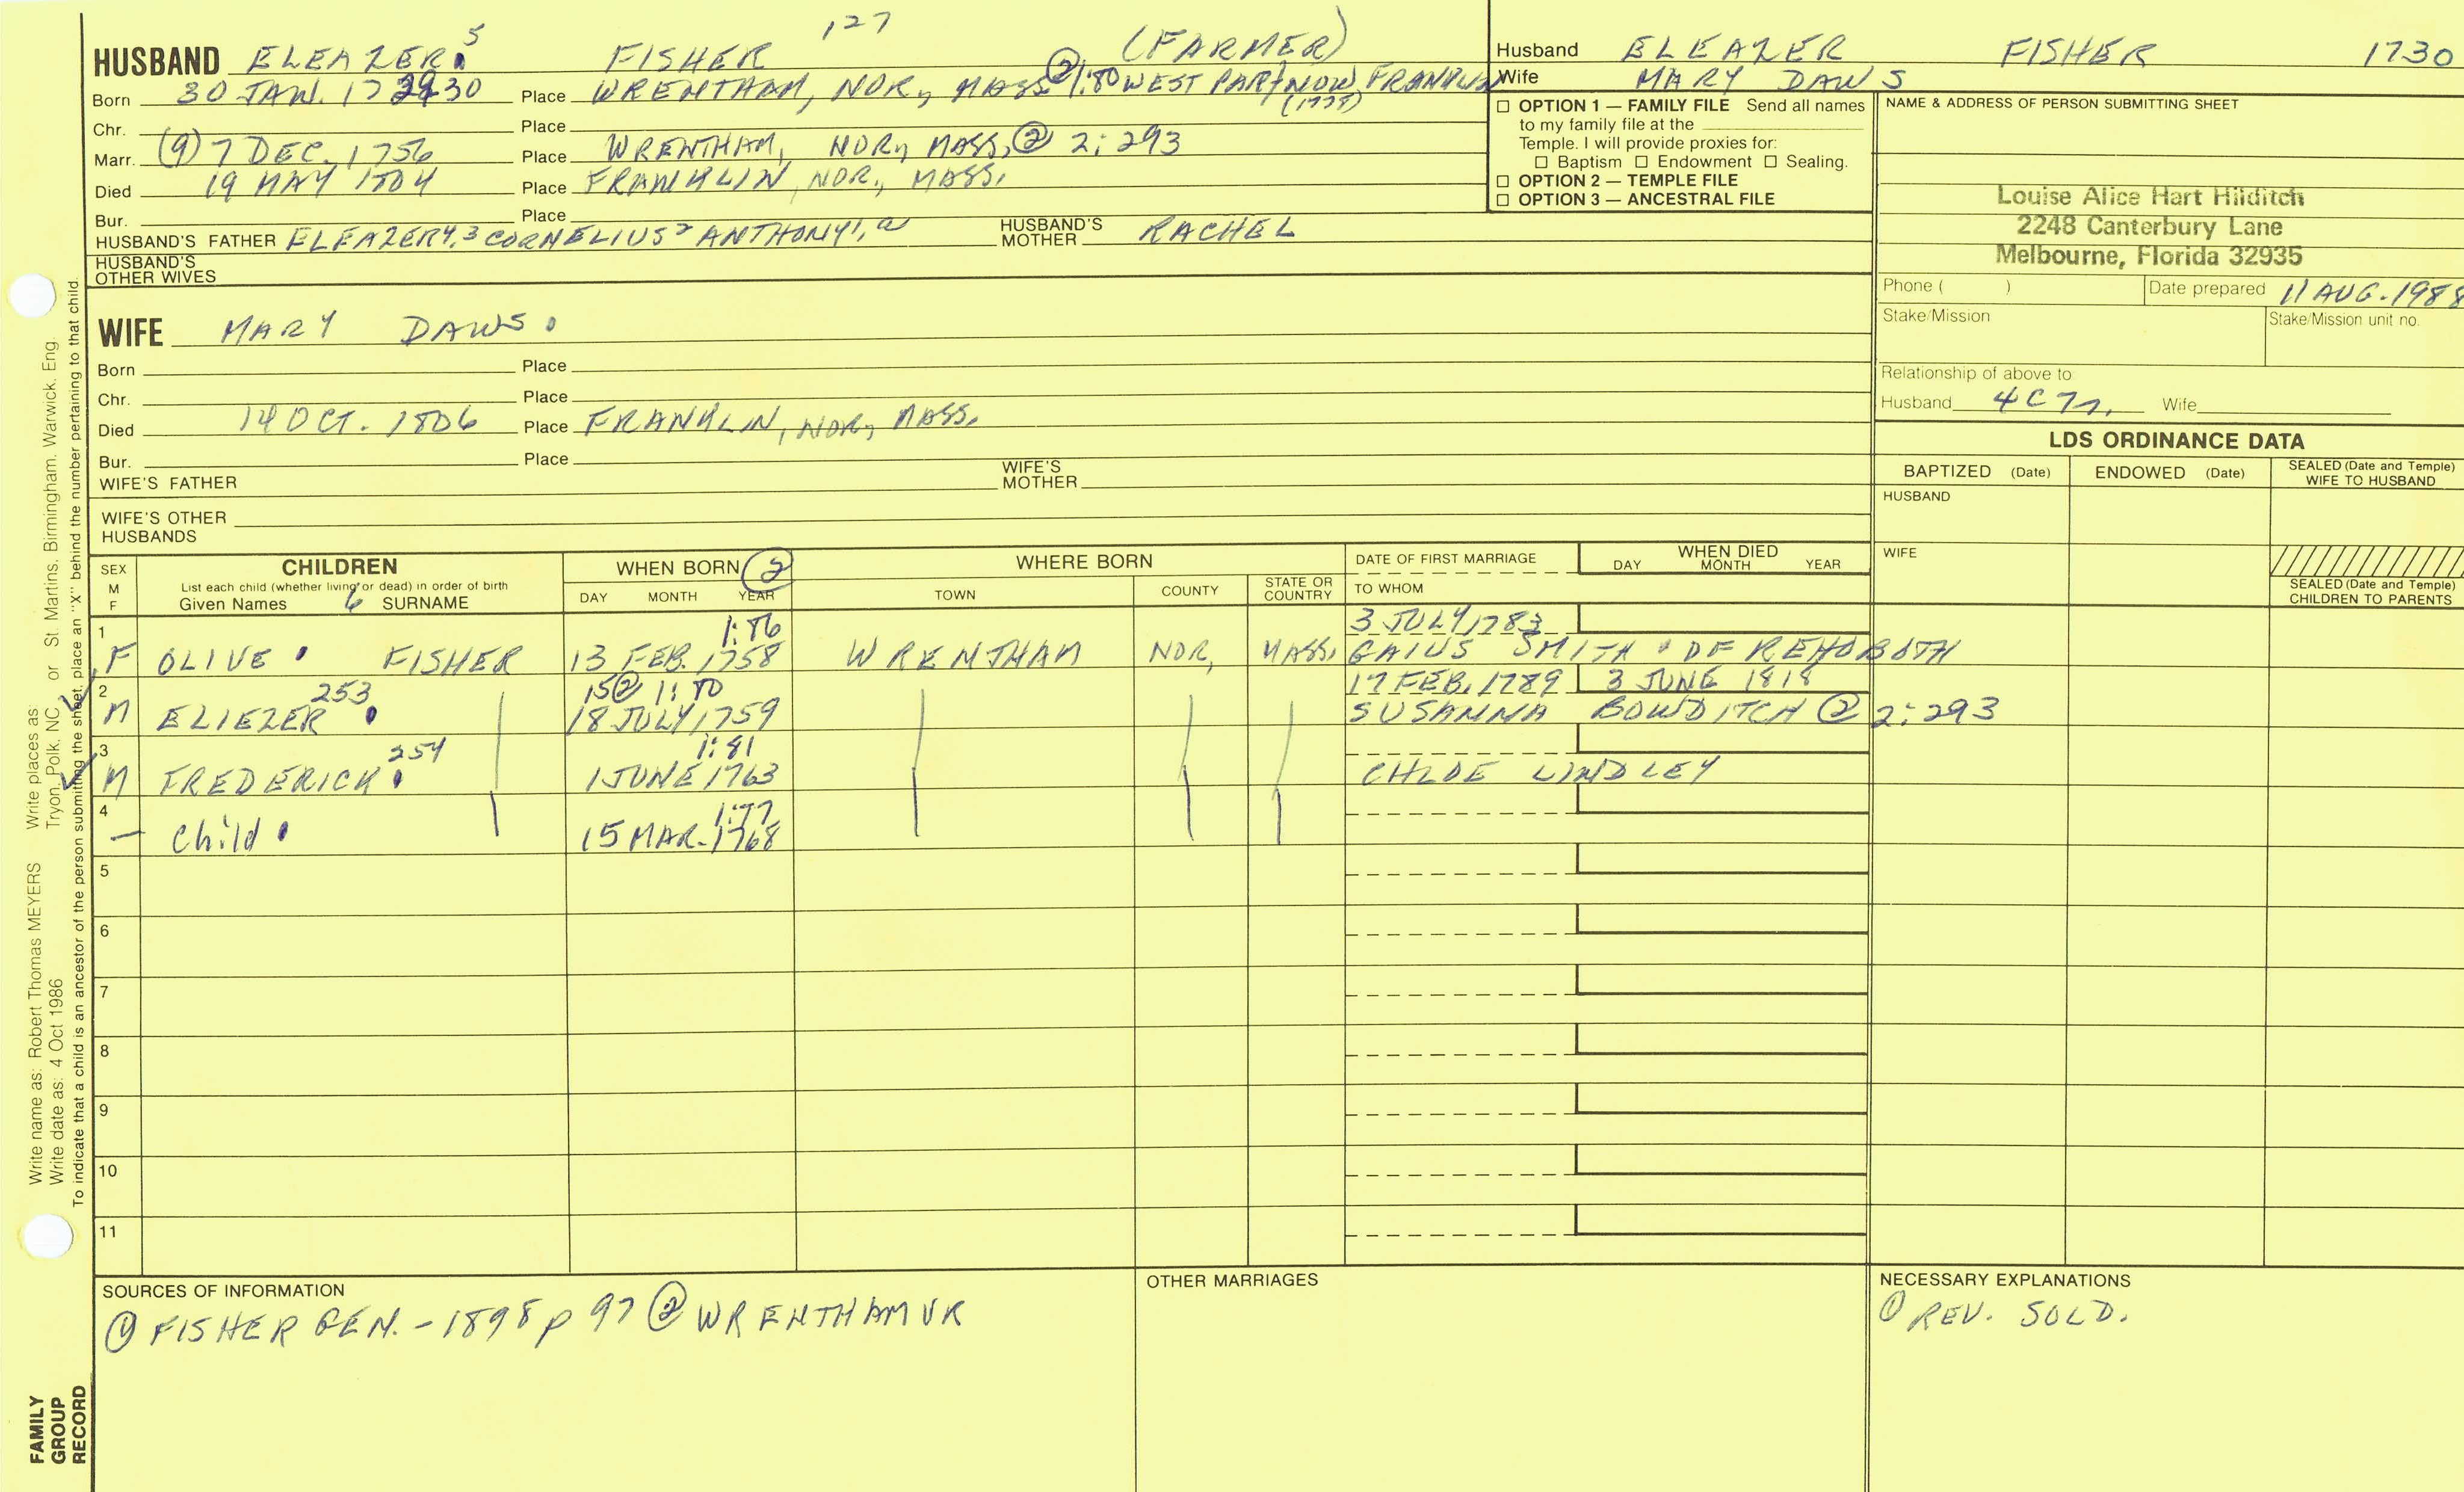 127
HUSBAND ELEAZER 5 FISHER (FARMER)
Born 30 JAN. 1729 30 Place WRENTHAM, NOR., MASS. ② 1:80 WEST PART NOW FRANKLIN
(1778)
Chr. Place
Marr. (9) 7 DEC. 1756 Place WRENTHAM, NOR., MASS, ② 2:293
Died 19 MAY 1804 Place FRANKLIN, NOR., MASS.
Bur. Place
HUSBAND'S FATHER ELEAZER 4, 3 CORNELIUS 2 ANTHONY 1, a HUSBAND'S MOTHER RACHEL
HUSBAND'S OTHER WIVES
Husband ELEAZER FISHER 1730
Wife MARY DAWS
☐ OPTION 1 — FAMILY FILE Send all names
to my family file at the
Temple. I will provide proxies for:
☐ Baptism ☐ Endowment ☐ Sealing.
☐ OPTION 2 — TEMPLE FILE
☐ OPTION 3 — ANCESTRAL FILE
NAME & ADDRESS OF PERSON SUBMITTING SHEET
Louise Alice Hart Hilditch
2248 Canterbury Lane
Melbourne, Florida 32935
Phone ( ) Date prepared 11 AUG. 1988
Stake/Mission Stake/Mission unit no.
Relationship of above to
Husband 4C7r. Wife
WIFE MARY DAWS
Born Place
Chr. Place
Died 14 OCT. 1806 Place FRANKLIN, NOR., MASS.
Bur. Place
WIFE'S FATHER WIFE'S MOTHER
WIFE'S OTHER HUSBANDS
LDS ORDINANCE DATA
BAPTIZED (Date) ENDOWED (Date) SEALED (Date and Temple) WIFE TO HUSBAND
HUSBAND
WIFE
SEALED (Date and Temple) CHILDREN TO PARENTS
SEX M F CHILDREN WHEN BORN ② WHERE BORN DATE OF FIRST MARRIAGE WHEN DIED
List each child (whether living or dead) in order of birth
Given Names 6 SURNAME DAY MONTH YEAR TOWN COUNTY STATE OR COUNTRY TO WHOM DAY MONTH YEAR
1 1:86 3 JULY 1783
F OLIVE FISHER 13 FEB. 1758 WRENTHAM NOR, MASS, GAIUS SMITH OF REHOBOTH
2 253 15② 1:80 17 FEB. 1789 3 JUNE 1818
M ELIEZER 18 JULY 1759 SUSANNA BOWDITCH ② 2:293
3 254 1:81
M FREDERICK 1 JUNE 1763 CHLOE LINDLEY
4 1:77
— child 15 MAR. 1768
5
6
7
8
9
10
11
SOURCES OF INFORMATION
① FISHER GEN. - 1898 p 97 ② WRENTHAM VR
OTHER MARRIAGES
NECESSARY EXPLANATIONS
① REV. SOLD.
Write name as: Robert Thomas MEYERS Write places as Tryon, Polk, NC or St. Martins, Birmingham, Warwick, Eng.
Write date as: 4 Oct 1986
To indicate that a child is an ancestor of the person submitting the sheet, place an "X" behind the number pertaining to that child.
FAMILY
GROUP
RECORD